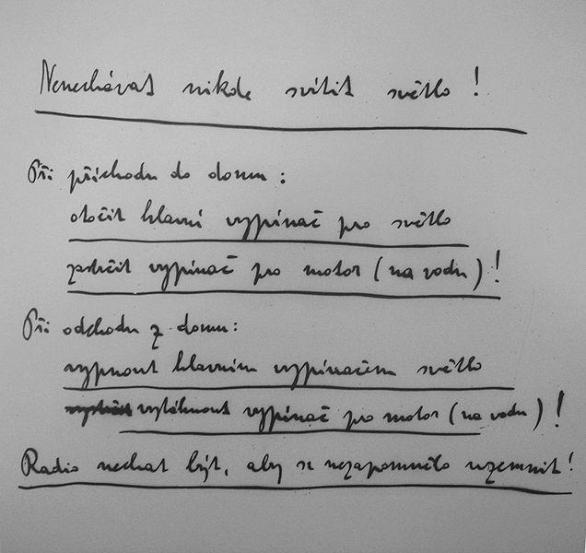 Nenechávat nikde svítit světlo!
Při příchodu do domu:
otočit hlavní vypínač pro světlo
zastrčit vypínač pro motor (na vodu)!
Při odchodu z domu:
vypnout hlavním vypínačem světlo
vytáhnout vypínač po motor (na vodu)!
Radio nechat být, aby se nezapomnělo uzemnit!